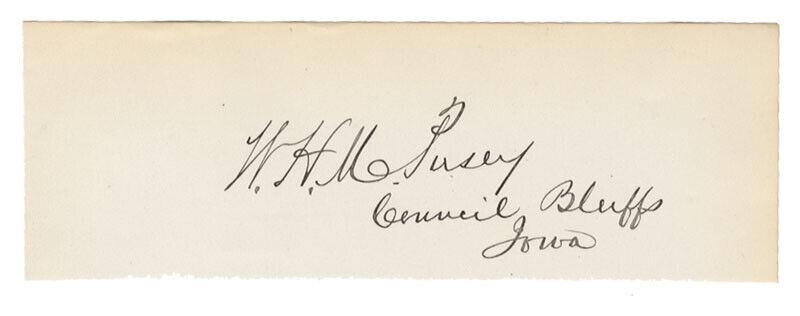 W. H. M. Pusey
Council Bluffs
Iowa